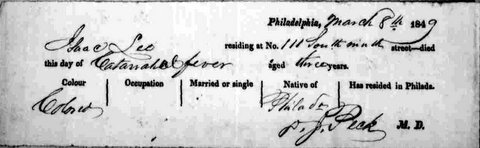 Philadelphia, March 8th 1849
Isaac Lee residing at No. 111 South ninth street—died
this day of Catarrahal fever aged three years.
Colour Occupation Married or single Native of Has resided in Philada.
Colored Philada
P. J. Peck M. D.